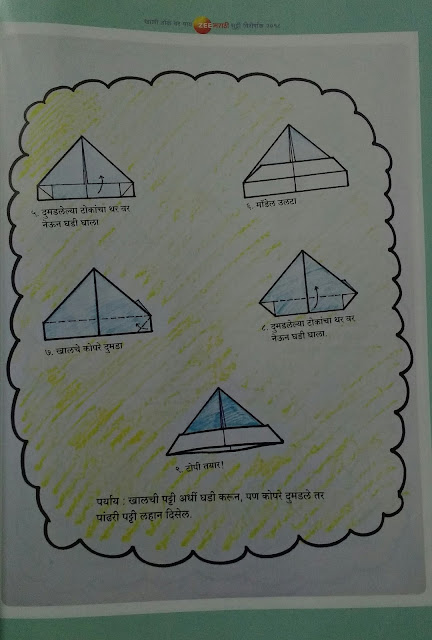 ZEE मराठी
५. दुमडलेल्या टोकांचा थर वर
नेऊन घडी घाला
६. मॉडेल उलटा
७. खालचे कोपरे दुमडा
८. दुमडलेल्या टोकांचा थर वर
नेऊन घडी घाला.
९. टोपी तयार!
पर्याय : खालची पट्टी अर्धी घडी करून, पण कोपरे दुमडले तर
पांढरी पट्टी लहान दिसेल.